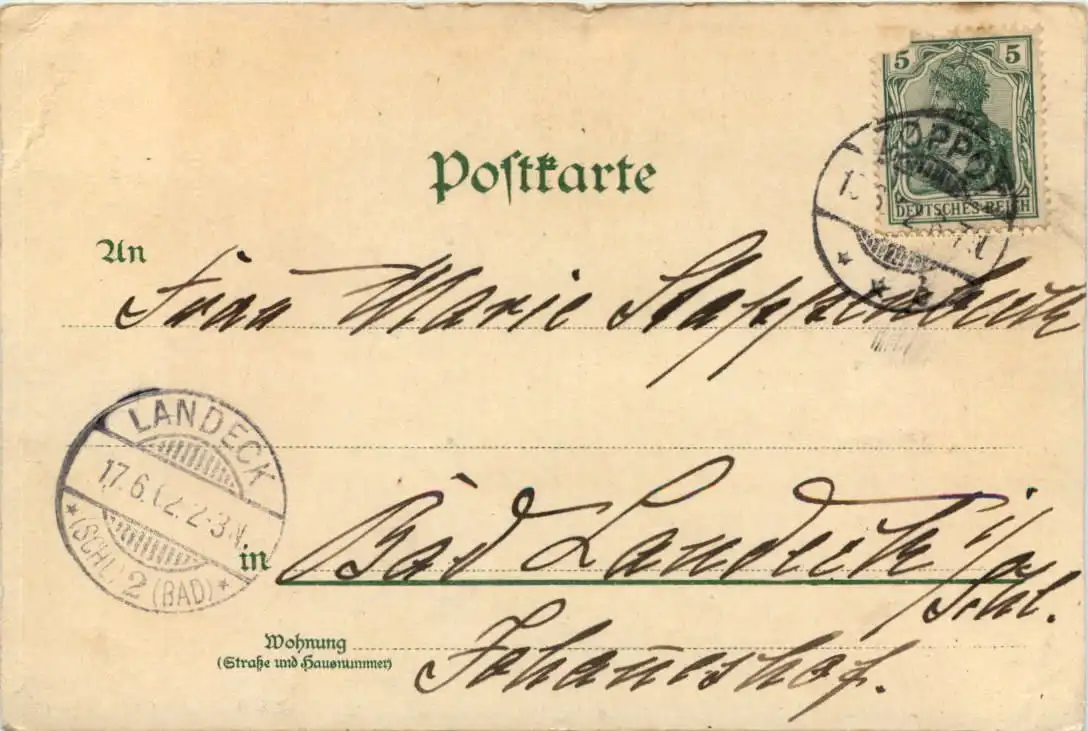 5 5
DEUTSCHES REICH
ZOPPOT
Postkarte
An
Frau Marie Stappenbeck
LANDECK
17.6.02.2-3N.
*(SCHL) 2 (BAD)*
in Bad Landeck i/a
Schl.
Wohnung
(Straße und Hausnummer)
Johanneshof.